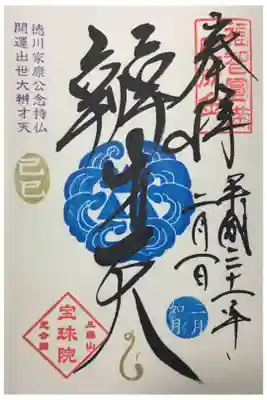 奉拝
平成三十一年
二月
二月
如月
辨才天
徳川家康公念持仏
開運出世大辨才天
己巳
三縁山
宝珠院
芝公園